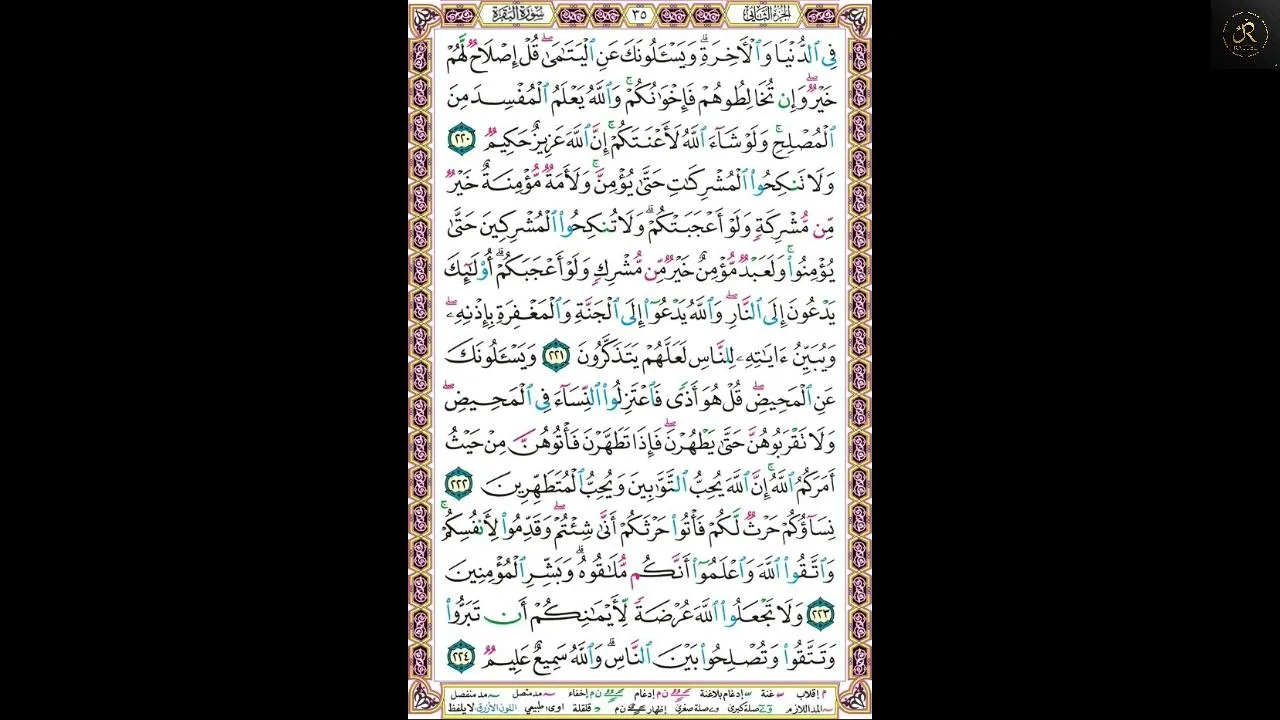 الجزء الثاني
٣٥
سورة البقرة
فِى ٱلدُّنْيَا وَٱلْأَخِرَةِ ۗ وَيَسْـَٔلُونَكَ عَنِ ٱلْيَتَـٰمَىٰ ۖ قُلْ إِصْلَاحٌ لَّهُمْ
خَيْرٌ ۖ وَإِن تُخَالِطُوهُمْ فَإِخْوَٰنُكُمْ ۚ وَٱللَّهُ يَعْلَمُ ٱلْمُفْسِدَ مِنَ
ٱلْمُصْلِحِ ۚ وَلَوْ شَآءَ ٱللَّهُ لَأَعْنَتَكُمْ ۚ إِنَّ ٱللَّهَ عَزِيزٌ حَكِيمٌ ٢٢٠
وَلَا تَنكِحُوا۟ ٱلْمُشْرِكَـٰتِ حَتَّىٰ يُؤْمِنَّ ۚ وَلَأَمَةٌ مُّؤْمِنَةٌ خَيْرٌ
مِّن مُّشْرِكَةٍ وَلَوْ أَعْجَبَتْكُمْ ۗ وَلَا تُنكِحُوا۟ ٱلْمُشْرِكِينَ حَتَّىٰ
يُؤْمِنُوا۟ ۚ وَلَعَبْدٌ مُّؤْمِنٌ خَيْرٌ مِّن مُّشْرِكٍ وَلَوْ أَعْجَبَكُمْ ۗ أُو۟لَـٰٓئِكَ
يَدْعُونَ إِلَى ٱلنَّارِ ۖ وَٱللَّهُ يَدْعُوٓا۟ إِلَى ٱلْجَنَّةِ وَٱلْمَغْفِرَةِ بِإِذْنِهِۦ ۖ
وَيُبَيِّنُ ءَايَـٰتِهِۦ لِلنَّاسِ لَعَلَّهُمْ يَتَذَكَّرُونَ ٢٢١ وَيَسْـَٔلُونَكَ
عَنِ ٱلْمَحِيضِ ۖ قُلْ هُوَ أَذًى فَٱعْتَزِلُوا۟ ٱلنِّسَآءَ فِى ٱلْمَحِيضِ ۖ
وَلَا تَقْرَبُوهُنَّ حَتَّىٰ يَطْهُرْنَ ۖ فَإِذَا تَطَهَّرْنَ فَأْتُوهُنَّ مِنْ حَيْثُ
أَمَرَكُمُ ٱللَّهُ ۚ إِنَّ ٱللَّهَ يُحِبُّ ٱلتَّوَّٰبِينَ وَيُحِبُّ ٱلْمُتَطَهِّرِينَ ٢٢٢
نِسَآؤُكُمْ حَرْثٌ لَّكُمْ فَأْتُوا۟ حَرْثَكُمْ أَنَّىٰ شِئْتُمْ ۖ وَقَدِّمُوا۟ لِأَنفُسِكُمْ ۚ
وَٱتَّقُوا۟ ٱللَّهَ وَٱعْلَمُوٓا۟ أَنَّكُم مُّلَـٰقُوهُ ۗ وَبَشِّرِ ٱلْمُؤْمِنِينَ
٢٢٣ وَلَا تَجْعَلُوا۟ ٱللَّهَ عُرْضَةً لِّأَيْمَـٰنِكُمْ أَن تَبَرُّوا۟
وَتَتَّقُوا۟ وَتُصْلِحُوا۟ بَيْنَ ٱلنَّاسِ ۗ وَٱللَّهُ سَمِيعٌ عَلِيمٌ ٢٢٤
م إقلاب غنة إدغام بلاغنة ن م إدغام ن م إخفاء مد متصل مد منفصل
المد اللازم صلة كبرى صلة صغرى إظهار ن م قلقلة اوى طبيعي اللون الأزرق لا يلفظ